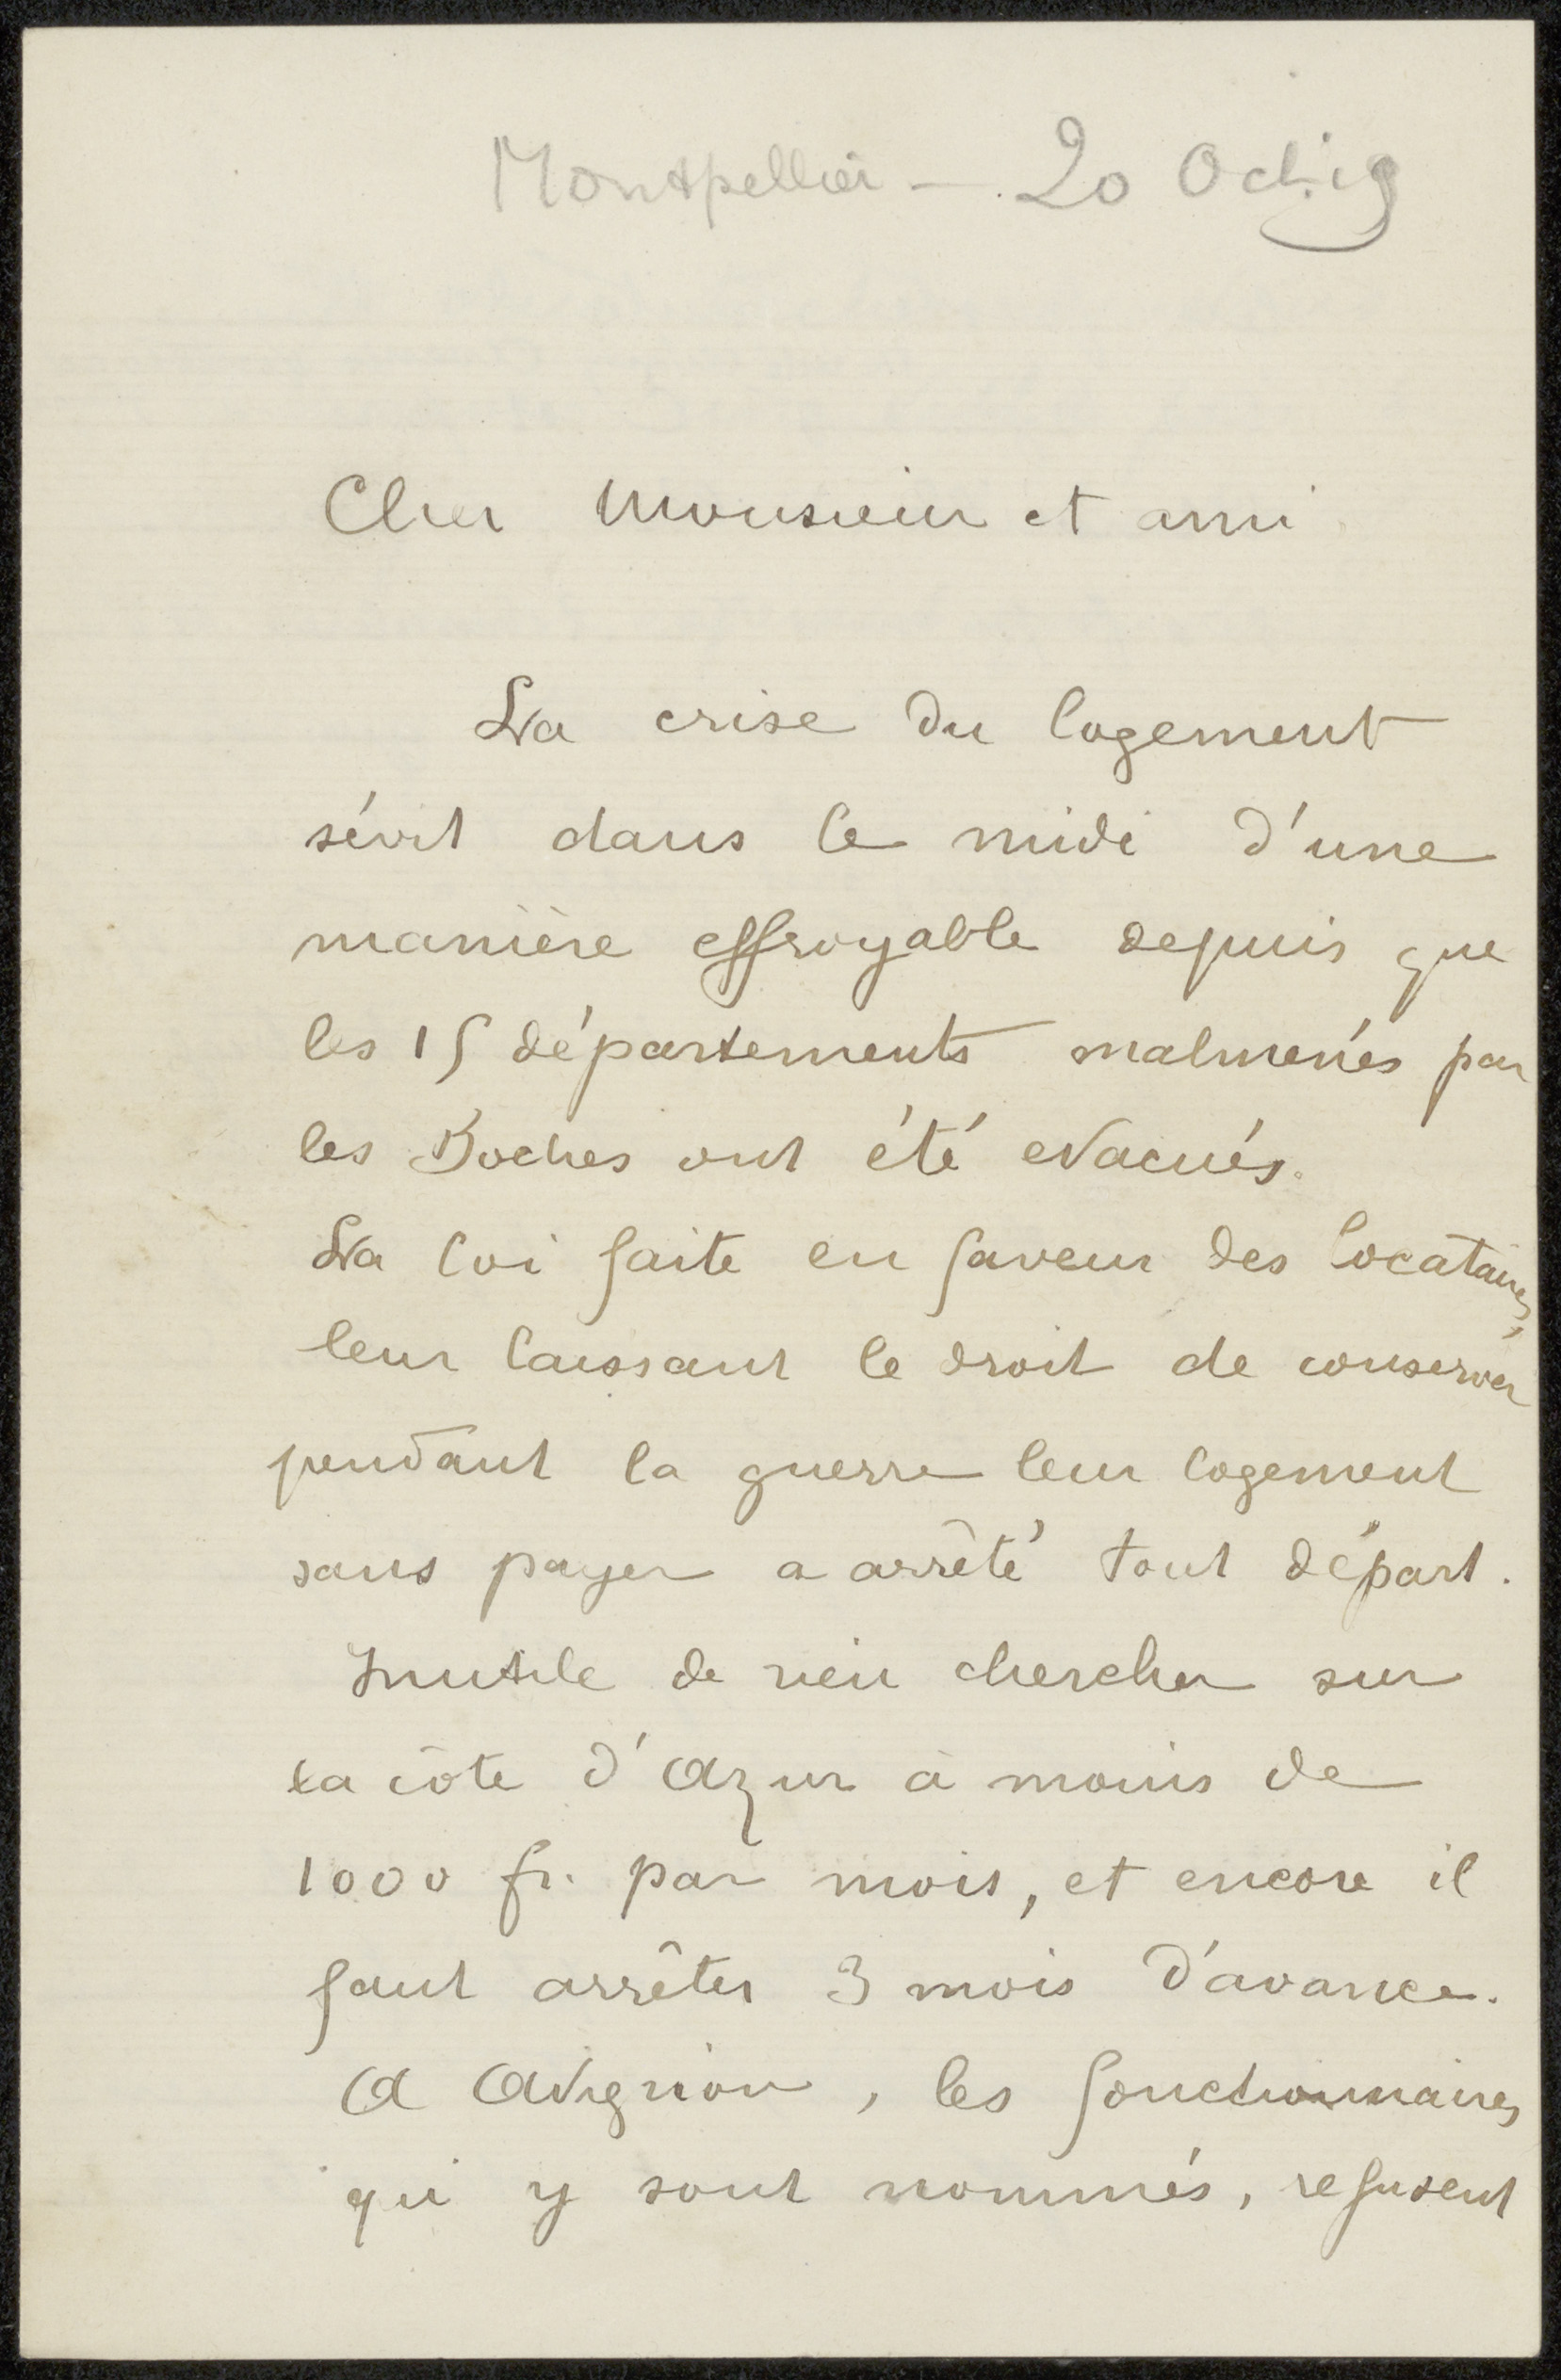 Montpellier - 20 Oct. 19
Cher Monsieur et ami
La crise du logement
sévit dans le midi d'une
manière effroyable depuis que
les 15 départements malmenés par
les Boches ont été evacués.
La loi faite en faveur des locataires,
leur laissant le droit de conserver
pendant la guerre leur logement
sans payer a arrêté tout départ.
Inutile de rien chercher sur
la côte d'Azur à moins de
1000 fr. par mois, et encore il
faut arrêter 3 mois d'avance.
A Avignon, les fonctionnaires
qui y sont nommés, refusent